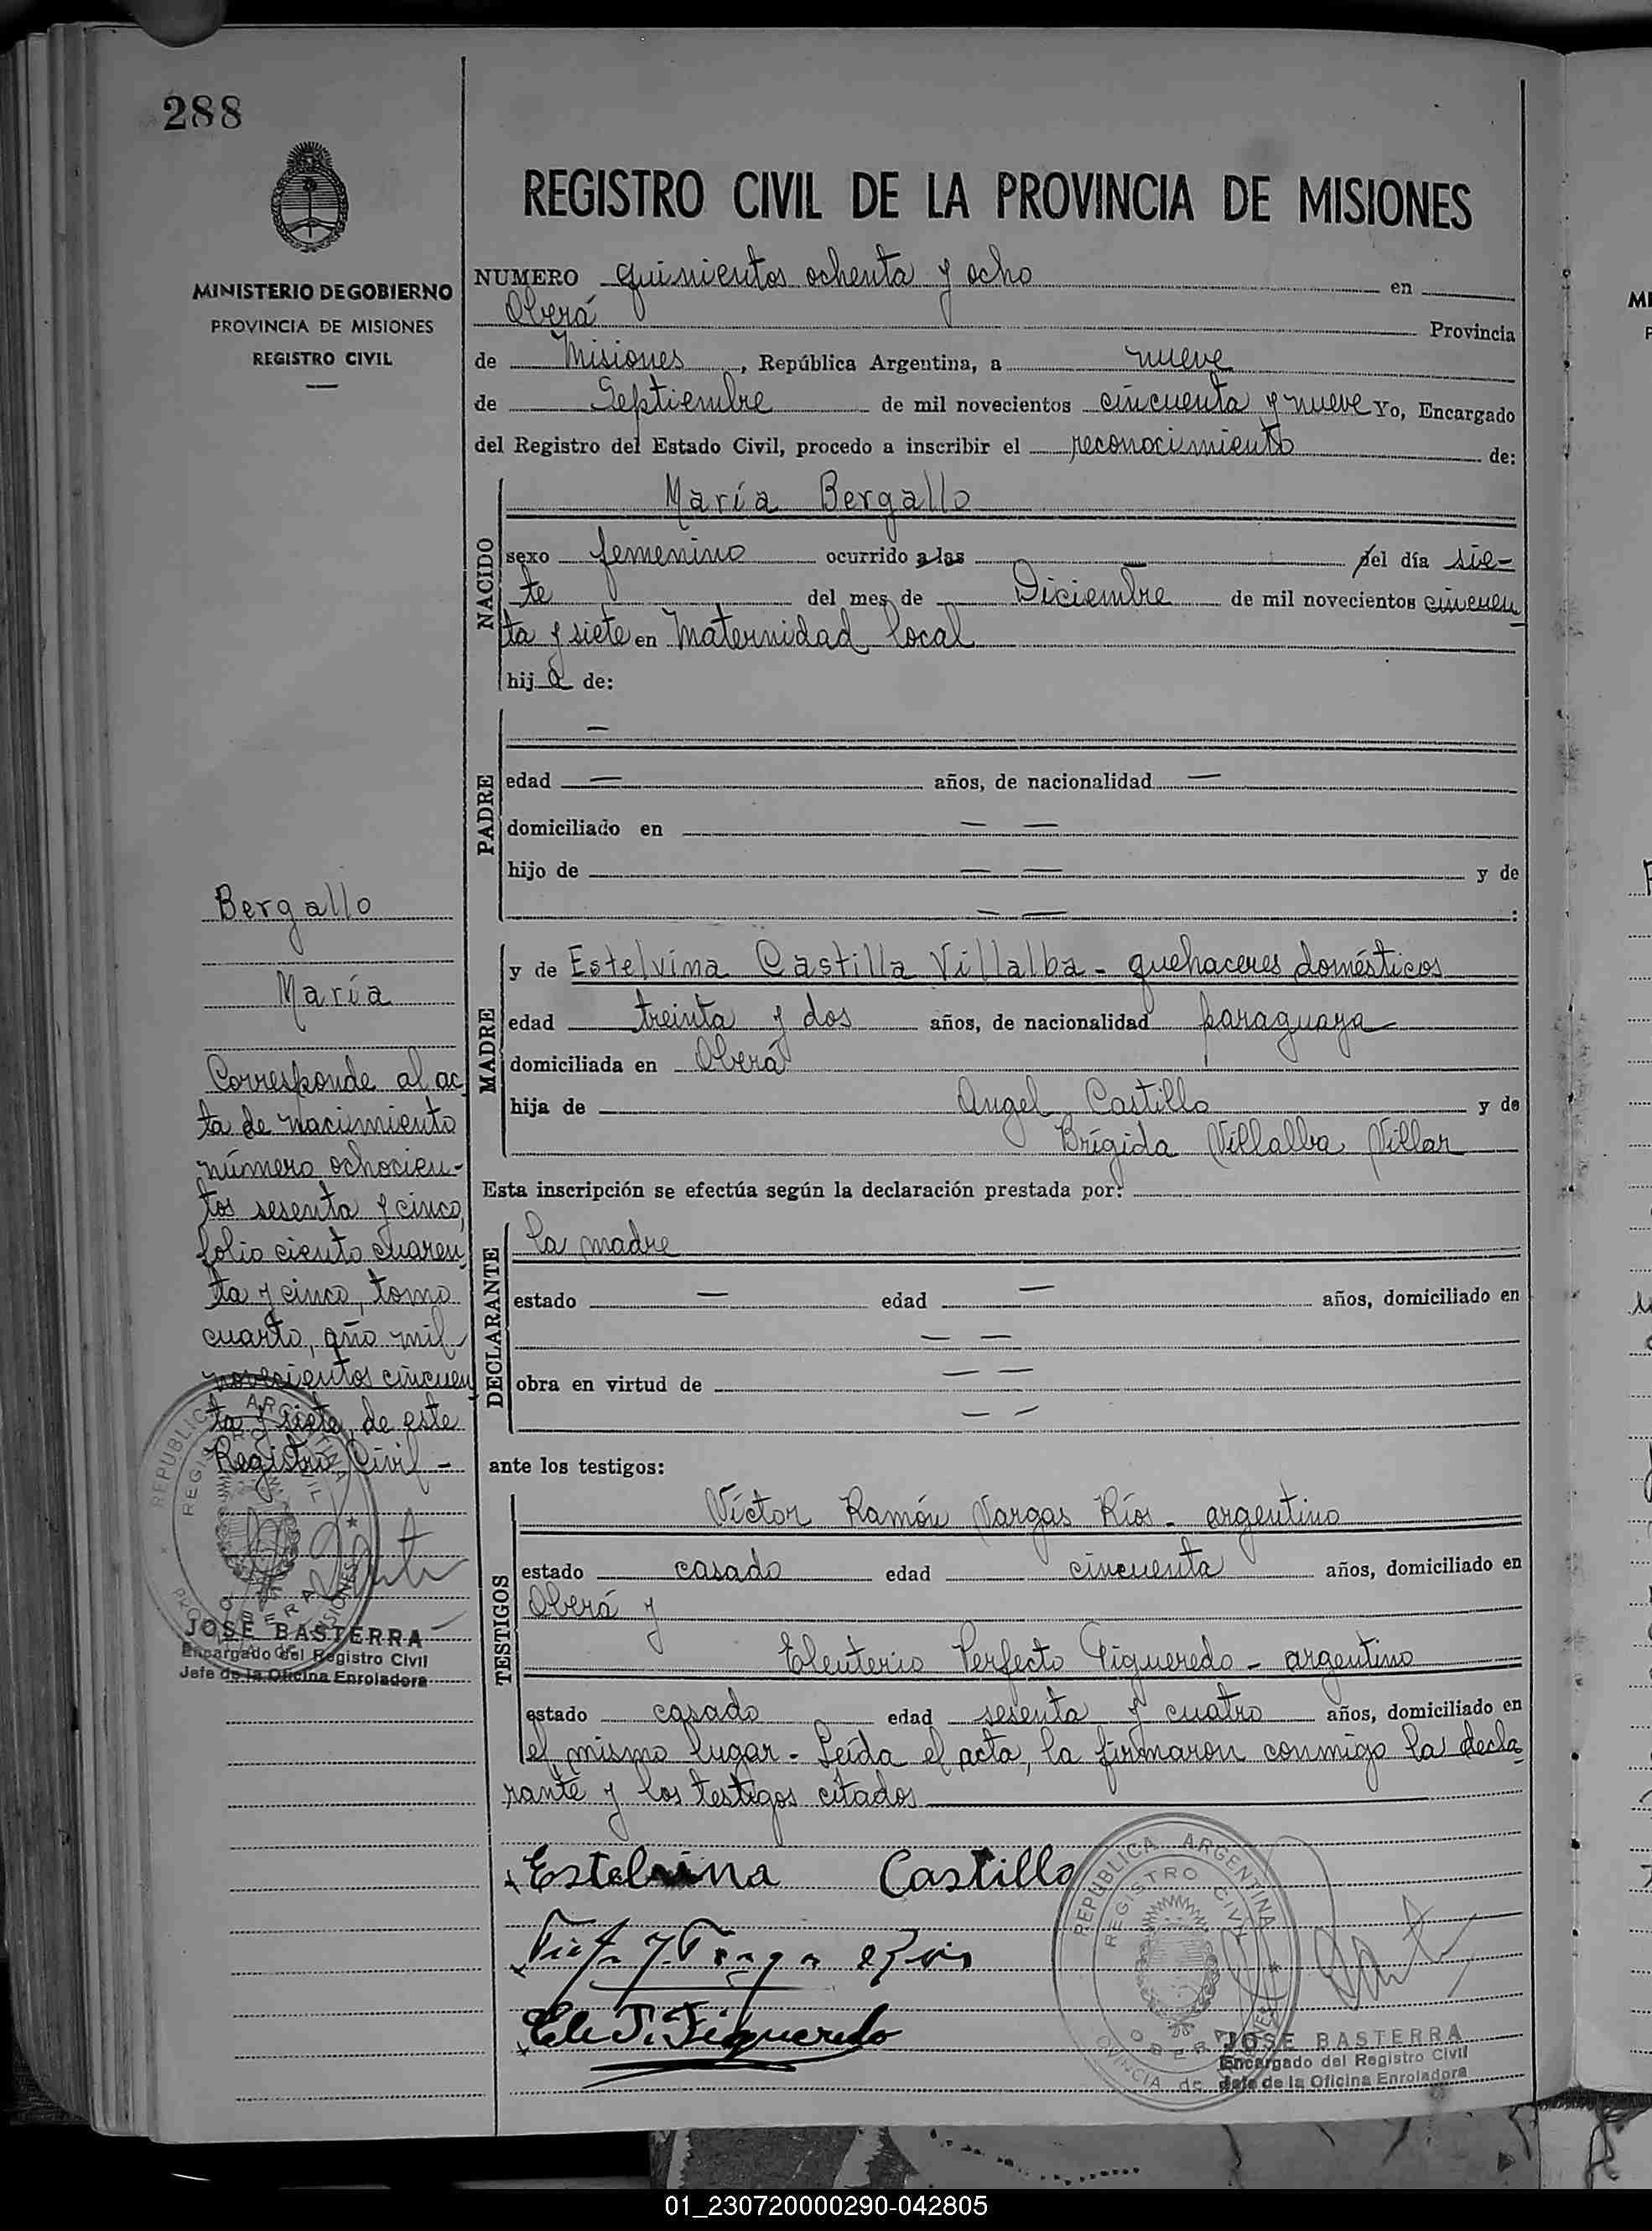 288
MINISTERIO DE GOBIERNO
PROVINCIA DE MISIONES
REGISTRO CIVIL
REGISTRO CIVIL DE LA PROVINCIA DE MISIONES
NUMERO quinientos ochenta y ocho en
Oberá Provincia
de Misiones, República Argentina, a nueve
de Septiembre de mil novecientos cincuenta y nueve Yo, Encargado
del Registro del Estado Civil, procedo a inscribir el reconocimiento de:
NACIDO
María Bergallo
sexo femenino ocurrido a las — del día sie-
te del mes de Diciembre de mil novecientos cincuen
ta y siete en Maternidad local
hija de:
PADRE
—
edad — años, de nacionalidad —
domiciliado en — —
hijo de — — y de
— — :
MADRE
y de Estelvina Castilla Villalba - quehaceres domésticos
edad treinta y dos años, de nacionalidad paraguaya
domiciliada en Oberá
hija de Angel Castillo y de
Brígida Villalba Villar
Esta inscripción se efectúa según la declaración prestada por:
DECLARANTE
la madre
estado — edad — años, domiciliado en
— —
obra en virtud de — —
— —
ante los testigos:
TESTIGOS
Víctor Ramón Vargas Ríos - argentino
estado casado edad cincuenta años, domiciliado en
Oberá y
Eleuterio Perfecto Figueredo - argentino
estado casado edad sesenta y cuatro años, domiciliado en
el mismo lugar - Leída el acta, la firmaron conmigo la decla
rante y los testigos citados
Estelvina Castillo
Ele P. Figueredo
REPUBLICA ARGENTINA
REGISTRO CIVIL
OBERA
PROVINCIA de MISIONES
JOSE BASTERRA
Encargado del Registro Civil
Jefe de la Oficina Enroladora
Bergallo
María
Corresponde al ac
ta de nacimiento
número ochocien-
tos sesenta y cinco,
folio ciento cuaren
ta y cinco, tomo
cuarto, año mil
novecientos cincuen
ta y siete, de este
Registro Civil -
REPUBLICA ARGENTINA
REGISTRO CIVIL
OBERA
PROVINCIA de MISIONES
JOSE BASTERRA
Encargado del Registro Civil
Jefe de la Oficina Enroladora
01_230720000290-042805